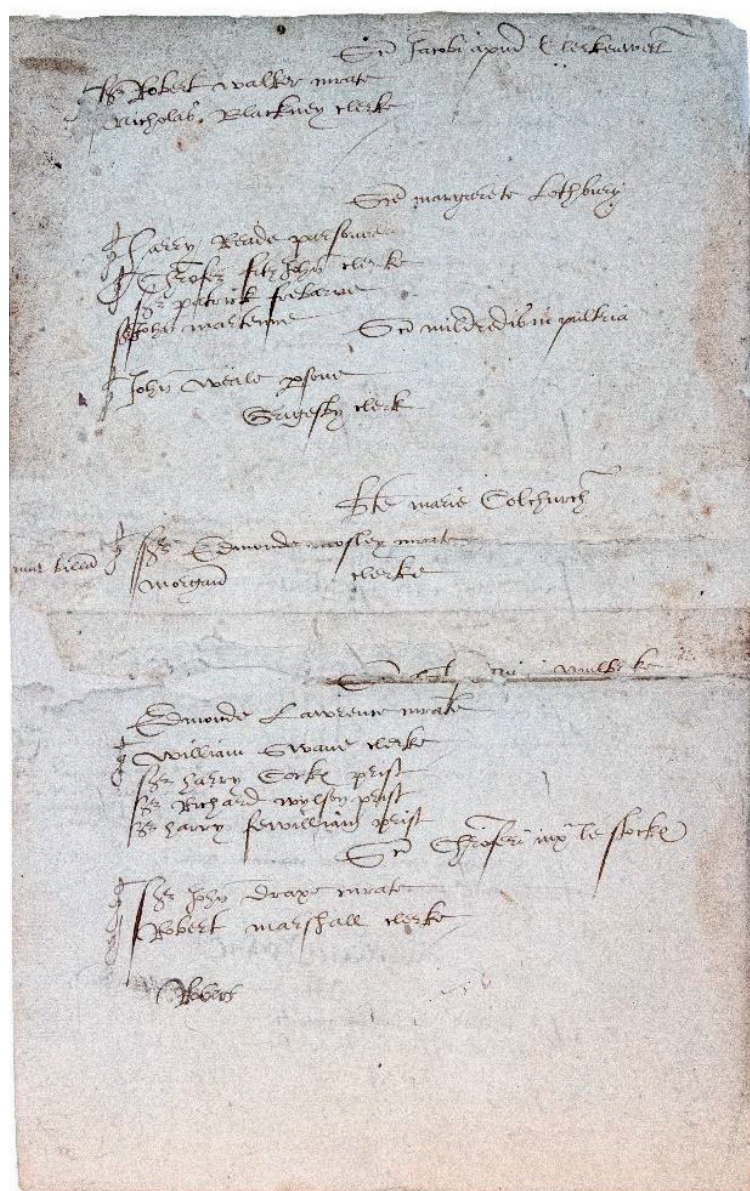 Sci Jacobi apud Clerkenwell
Sr Robert Walker curate
Nicholas Blackney clerke
Sce margarete Lothbury
Harry Reade parsonne
Xpofer fitzJohn clerke
Sr patrick
Sr John martenne
Sce mildredis in pultria
John Weale psone
Grigesby clerk
Bte marie Colchurch
Sr Edmonde mosley curate
morgan clerke
Edmonde Lawrence curate
William Swane clerke
Sr harry Cocke prist
Sr Richard Wylson prist
Sr harry fewilliam prist
Sci Xpoferi iuxa le stocke
Sr John Draxe curate
Robert marshall clerke
Robert